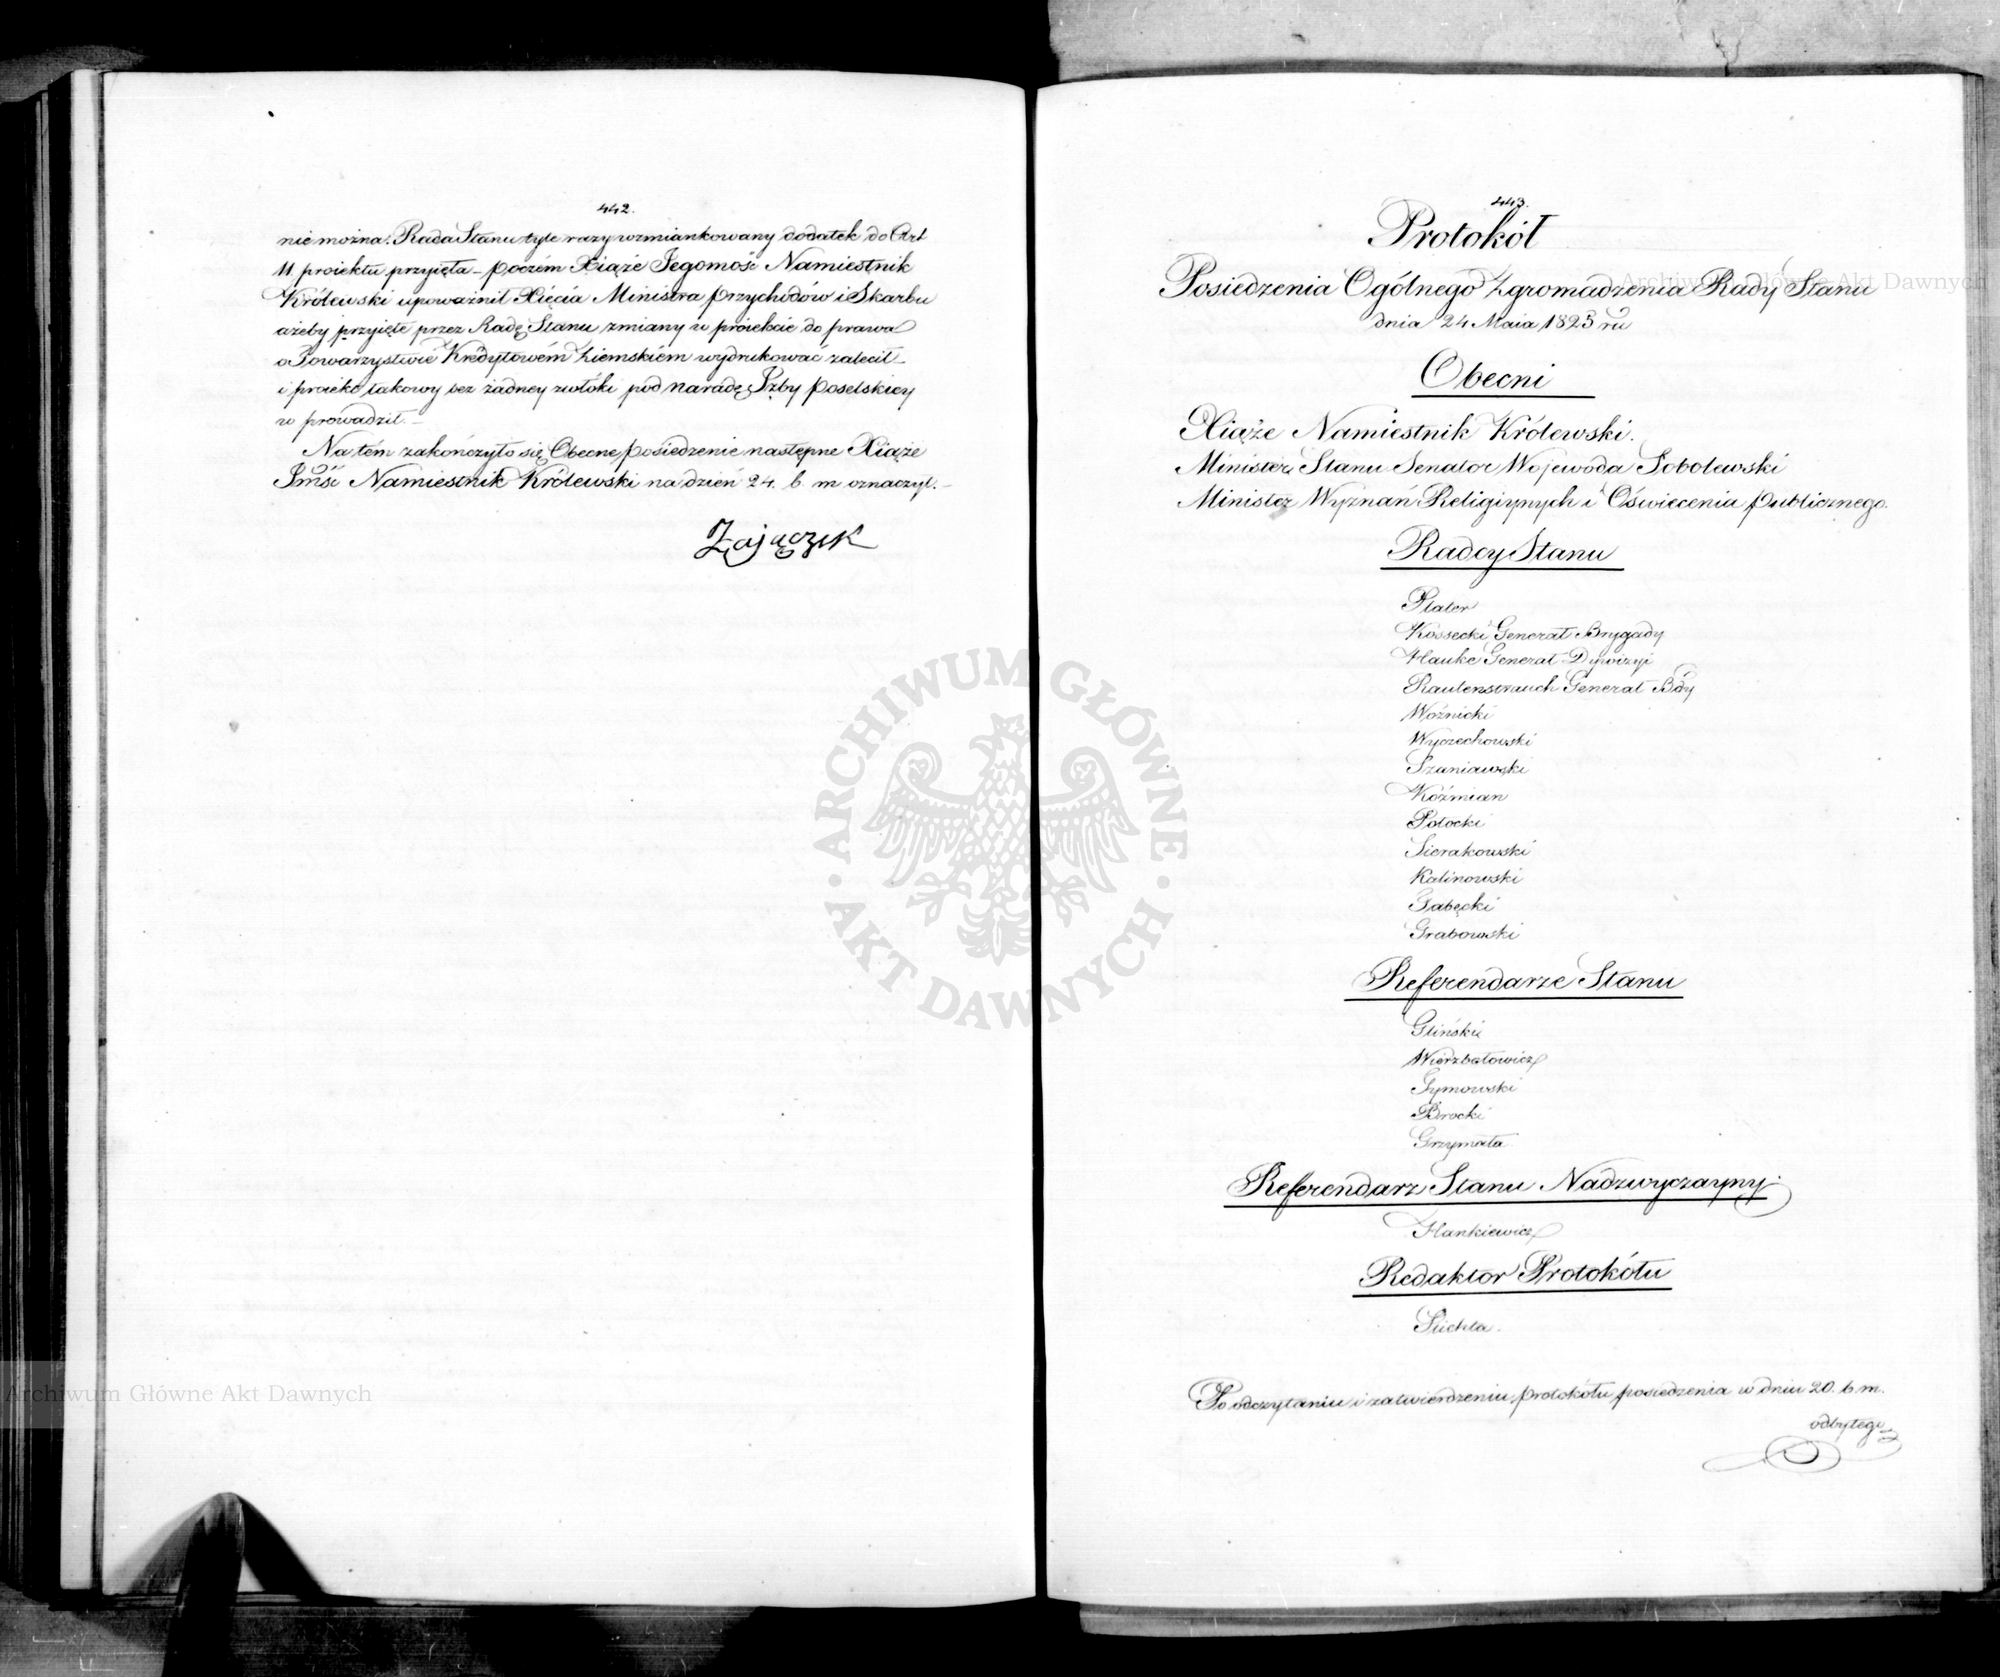 442.
nie można. Rada Stanu tyle razy wzmiankowany dodatek do Art
11. proiektu przyięła – poczém Xiąże Jegomość Namiestnik
Królewski upoważnił Xięcia Ministra przychodów i Skarbu
ażeby przyięte przez Radę Stanu zmiany w proiekcie do prawa
o Towarzystwie Kredytowém Ziemskiém wydrukować zalecił
i proiekt takowy bez żadney zwłóki pod naradę Izby poselskiey
w prowadził. –
Na tém zakończyło się Obecne posiedzenie następne Xiąże
Jmść Namiestnik Królewski na dzień 24. b. m oznaczył. –
Zajączek
443.
Protokół
Posiedzenia Ogólnego Zgromadzenia Rady Stanu
dnia 24 Maia 1825 ru
Obecni
Xiąże Namiestnik Królewski.
Minister Stanu Senator Wojewoda Sobolewski
Minister Wyznań Religiynych i Oświecenia publicznego.
Radcy Stanu
Plater
Kossecki Generał Brygady
Hauke Generał Dywizyi
Rautenstrauch Generał Bdy
Woźnicki
Wyczechowski
Szaniawski
Koźmian
Potocki
Sierakowski
Kalinowski
Łabęcki
Grabowski
Referendarze Stanu
Gliński
Wierzbołowicz
Tymowski
Brocki
Grzymała
Referendarz Stanu Nadzwyczayny.
Hankiewicz
Redaktor Protokółu
Slichta.
Po odczytaniu i zatwierdzeniu protokółu posiedzenia w dniu 20. b. m.
odbytego
ARCHIWUM GŁÓWNE
AKT DAWNYCH
Archiwum Główne Akt Dawnych
Archiwum Główne Akt Dawnych